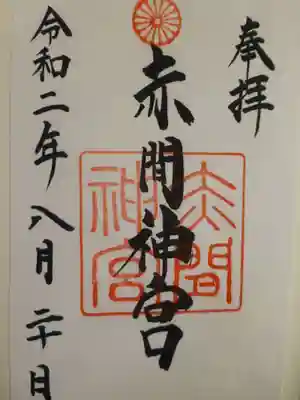 奉拝
赤間神宮
赤間
神宮
令和二年八月二十日